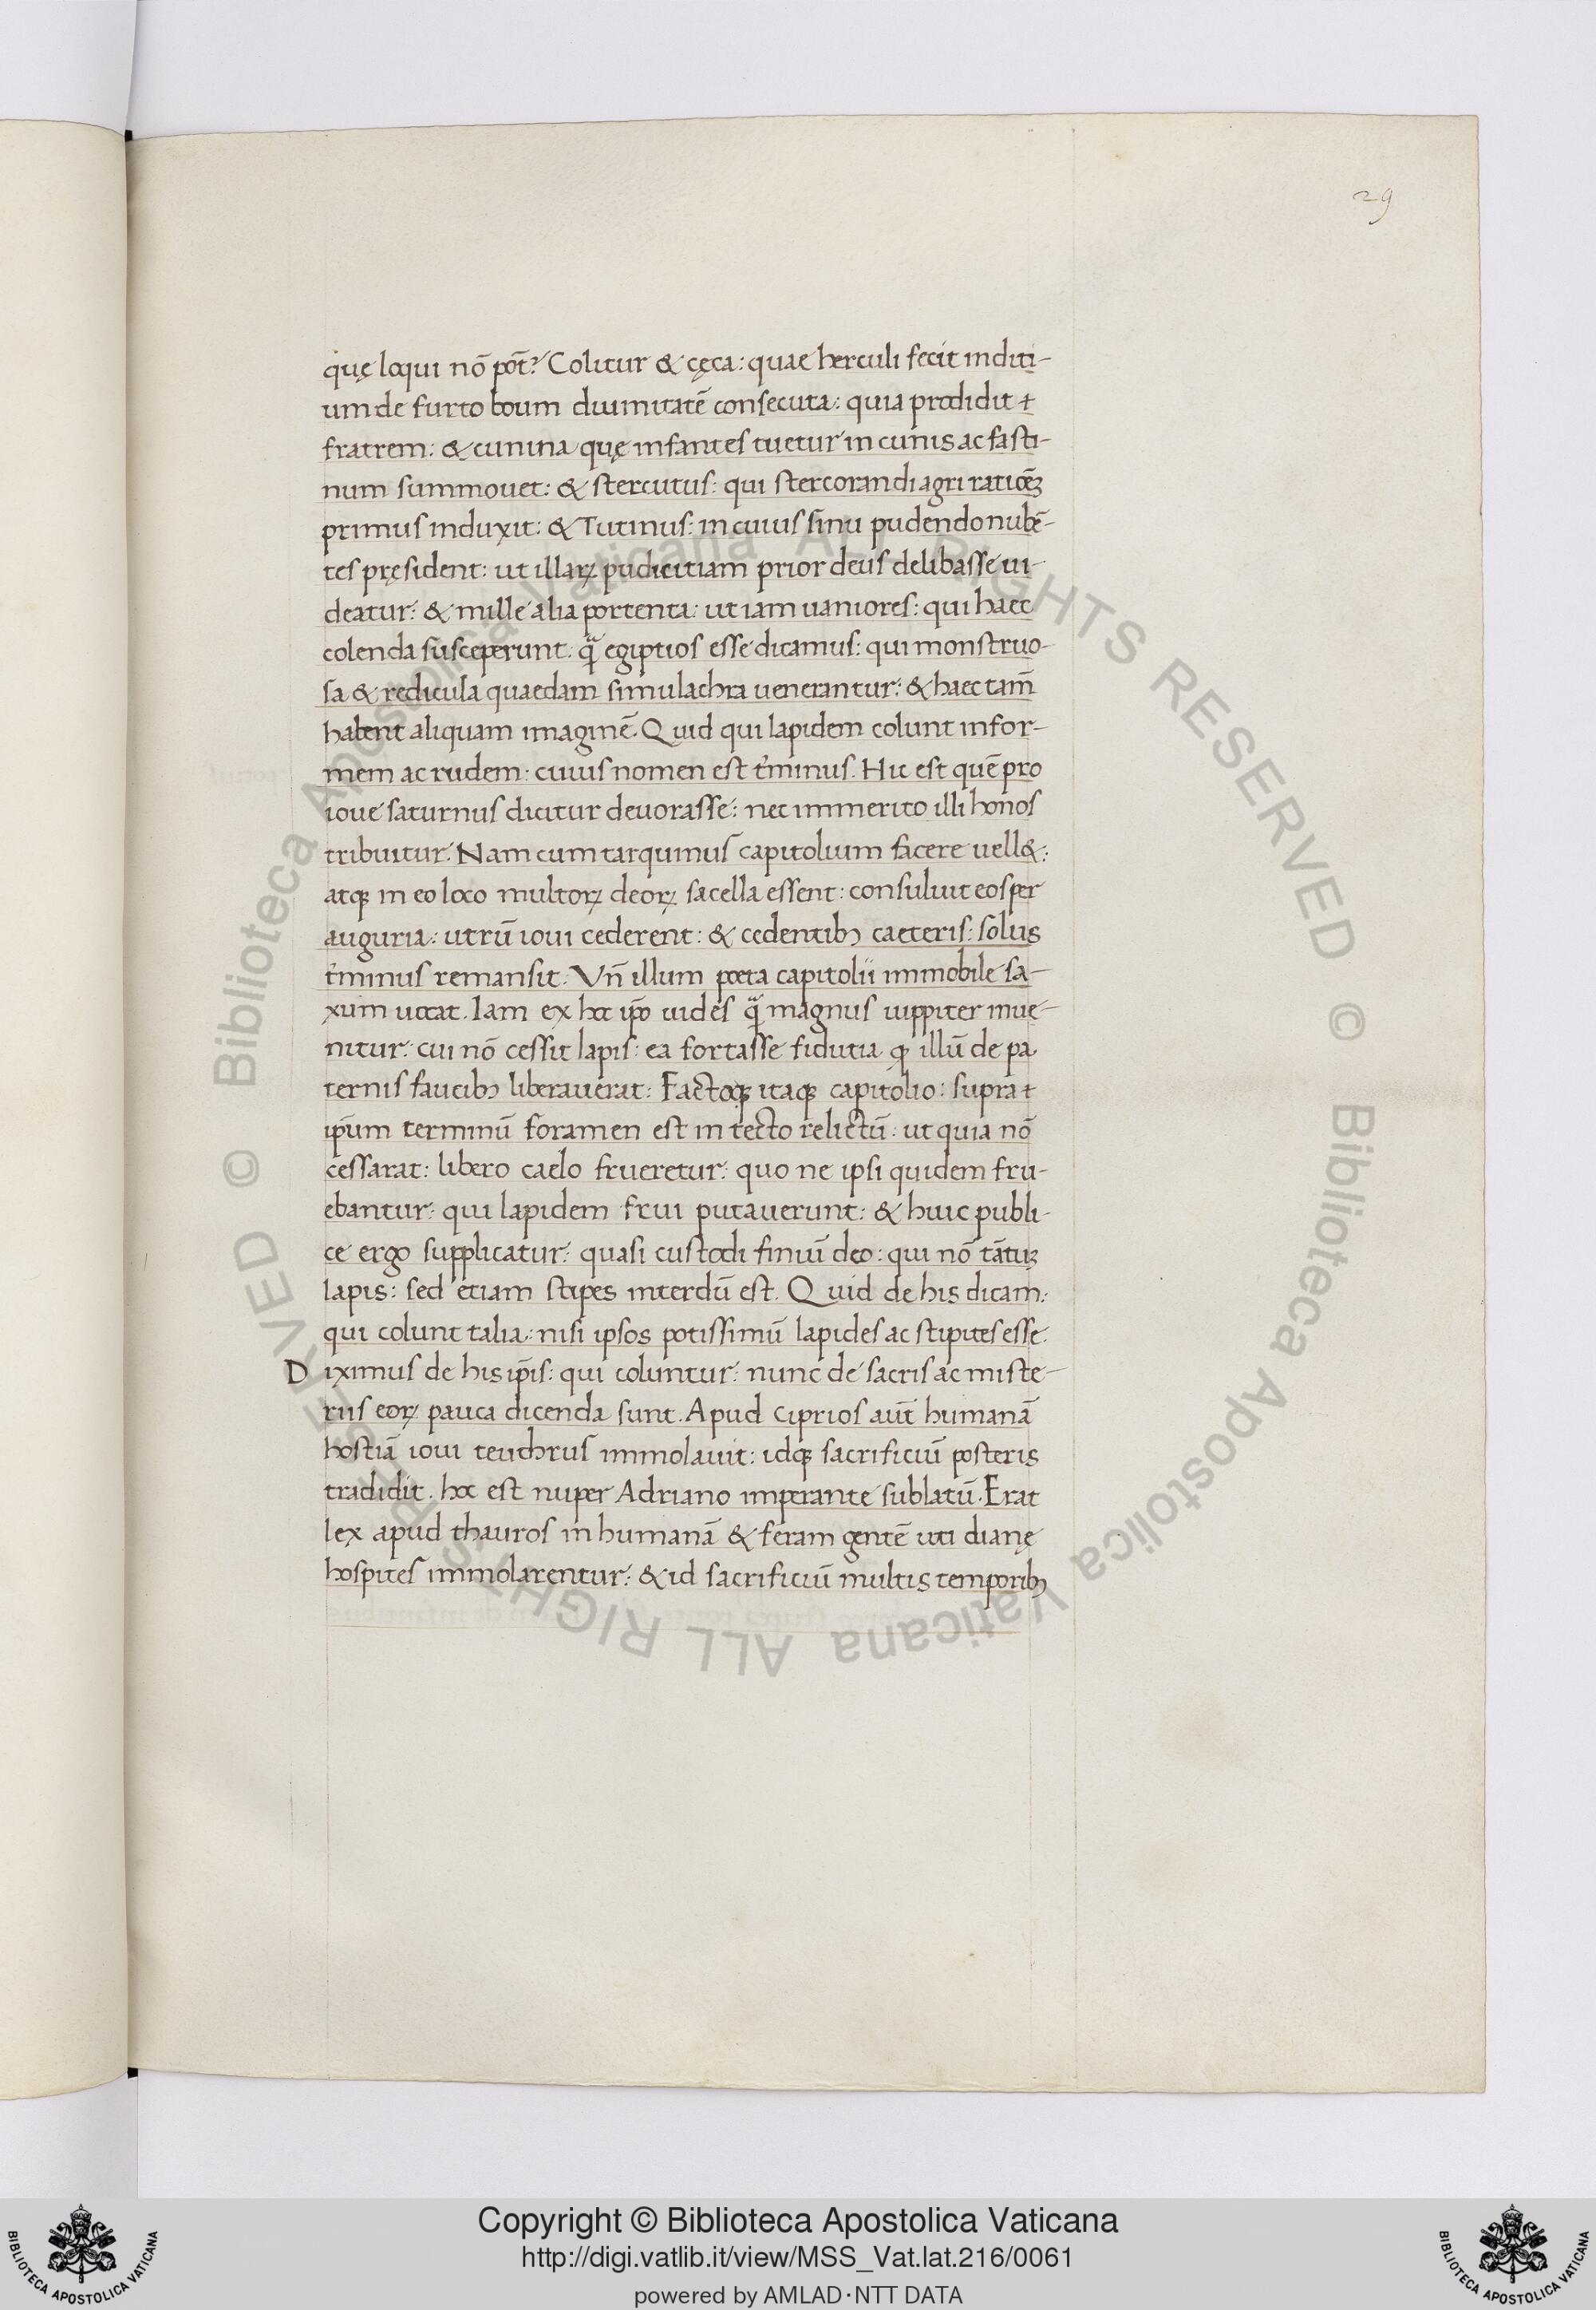 29
quę loqui nō pōt? Colitur & cęca: quae herculi fecit inditi-
um de furto boum diuinitatē consecuta: quia prodidit +
fratrem: & cunina quę infantes tuetur in cunis ac fasti-
num summouet: & stercutus: qui stercorandi agri ratiōēꝫ
primus induxit: & Tutinus: in cuius sinu pudendo nubē-
tes pręsident: ut illaꝝ pudicitiam prior deus delibasse ui-
deatur: & mille alia portenta: ut iam uaniores: qui haec
colenda susceperunt: qᷓ egiptios esse dicamus: qui monstruo-
sa & redicula quaedam simulachra uenerantur: & haec tam̄
habent aliquam imaginē. Quid qui lapidem colunt infor-
mem ac rudem: cuius nomen est t̓minus. Hic est quē pro
ioue saturnus dicitur deuorasse: nec immerito illi honos
tribuitur. Nam cum tarquinius capitolium facere uell&:
atqꝫ in eo loco multoꝝ deoꝝ sacella essent: consuluit eos per
auguria: utrū ioui cederent: & cedentibꝫ caeteris: solus
t̓minus remansit. Vn̄ illum poeta capitolii immobile sa-
xum uocat. Iam ex hoc ip̄o uides qᷓ magnus iuppiter inue-
nitur: cui nō cessit lapis: ea fortasse fidutia qꝫ illū de pa
ternis faucibꝫ liberauerat: Factoqꝫ itaqꝫ capitolio: supra +
ip̄um terminū foramen est in tecto relictū: ut quia nō
cessarat: libero caelo frueretur: quo ne ipsi quidem fru-
ebantur: qui lapidem frui putauerunt: & huic publi-
ce ergo supplicatur: quasi custodi finiū deo: qui nō tātuꝫ
lapis: sed etiam stipes interdū est. Quid de his dicam:
qui colunt talia: nisi ipsos potissimū lapides ac stipites esse.
Diximus de his ip̄is: qui coluntur: nunc de sacris ac miste-
riis eoꝝ pauca dicenda sunt. Apud ciprios aūt humanā
hostiā ioui teuchrus immolauit: idqꝫ sacrificiū posteris
tradidit. hoc est nuper Adriano imperante sublatū. Erat
lex apud thauros inhumanā & feram gentē uti dianę
hospites immolarentur: & id sacrificiū multis temporibꝫ
© Biblioteca Apostolica Vaticana ALL RIGHTS RESERVED
© Biblioteca Apostolica Vaticana ALL RIGHTS RESERVED
Copyright © Biblioteca Apostolica Vaticana
http://digi.vatlib.it/view/MSS_Vat.lat.216/0061
powered by AMLAD·NTT DATA
BIBLIOTECA APOSTOLICA VATICANA
BIBLIOTECA APOSTOLICA VATICANA